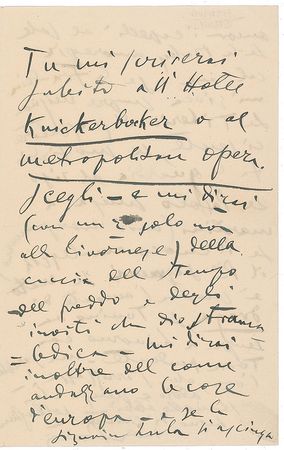 Tu mi scriverai
subito all' Hotel
Knickerbocker o al
metropolitan opera.
Scegli - e mi dirai
(con un z solo non
alla livornese) della
caccia del tempo
- del freddo e degli
inviti che dio
- mi dirai
inoltre del come
andazzano le cose
d'europa - e se la
signora